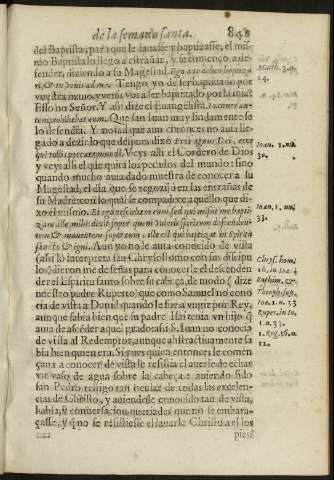 de la semana santa. 848
del Baptista, para que le lauasse y baptizasse, el mis
mo Baptista lo llego a estrañar, y començo a de
fender, diziendo a su Magestad. Ego a te debeo baptiza
ri, & tu venis ad me. Tengo yo de ser baptizado por
vuestra mano, y venis vos a ser baptizado por la mia?
Esso no Señor. Y assi dize el Euangelista. Ioannes au-
tem prohibebat eum. Que san Iuan muy lindamente se
lo defendia. Y notad que aun entonces no auia lle-
gado a dezir lo que despues dixo. Ecce agnus Dei, ecce
qui tollit peccata mundi. Veys alli el Cordero de Dios
y veys alli el que quita los pecados del mundo: sino
quando mucho auia dado muestra de conocer a su
Magestad, el dia que se regozijò en las entrañas de
su Madre:
dixo el mismo. Et ego nesciebam eum, sed qui misit me bapti-
zare
tem, & manentem super eum, ille est qui baptizat in Spiritu
sancto & igni. Aun yo no le auia conocido de vista
(assi lo interpreta san Chrysostomo con sus discipu
los) dieronme de señas para conocerle el descender
del Espiritu santo sobre su cabeça, de modo (dize
nuestro padre Ruperto) que como Samuel no cono
cia de vista a Dauid quando le fue a vngir por Rey,
aunque sabia bien que su padre Isai tenia vn hijo que
auia de ascender aquel grado: assi S. Iuan no conocia
de vista al Redemptor, aunque abstractiuamente sa
bia bien quien era. Si pues quien entonces le comen
çaua a conocer de vista le resistia el auerle de echar
vn vaso de agua sobre la cabeça: auiendo sido
san Pedro testigo tan ocular de todas las excelen-
cias de Christo, y auiendole conocido tan de vista,
habla, y conuersacion, querriades que no se emba-
çasse, y que no se resistiesse el lauarle Christo a el los
pies?
Matth. 3. nu.
14.
Ioan. 1. nu.
30.
Ioan. 1. nu.
33.
Chrys. hom.
16. in Ioe.
Euthim.
Theoph. sup.
Ioa. 1. n. 33
Ruper. in Io.
1. n. 33.
1. Reg. 16. n.
12.